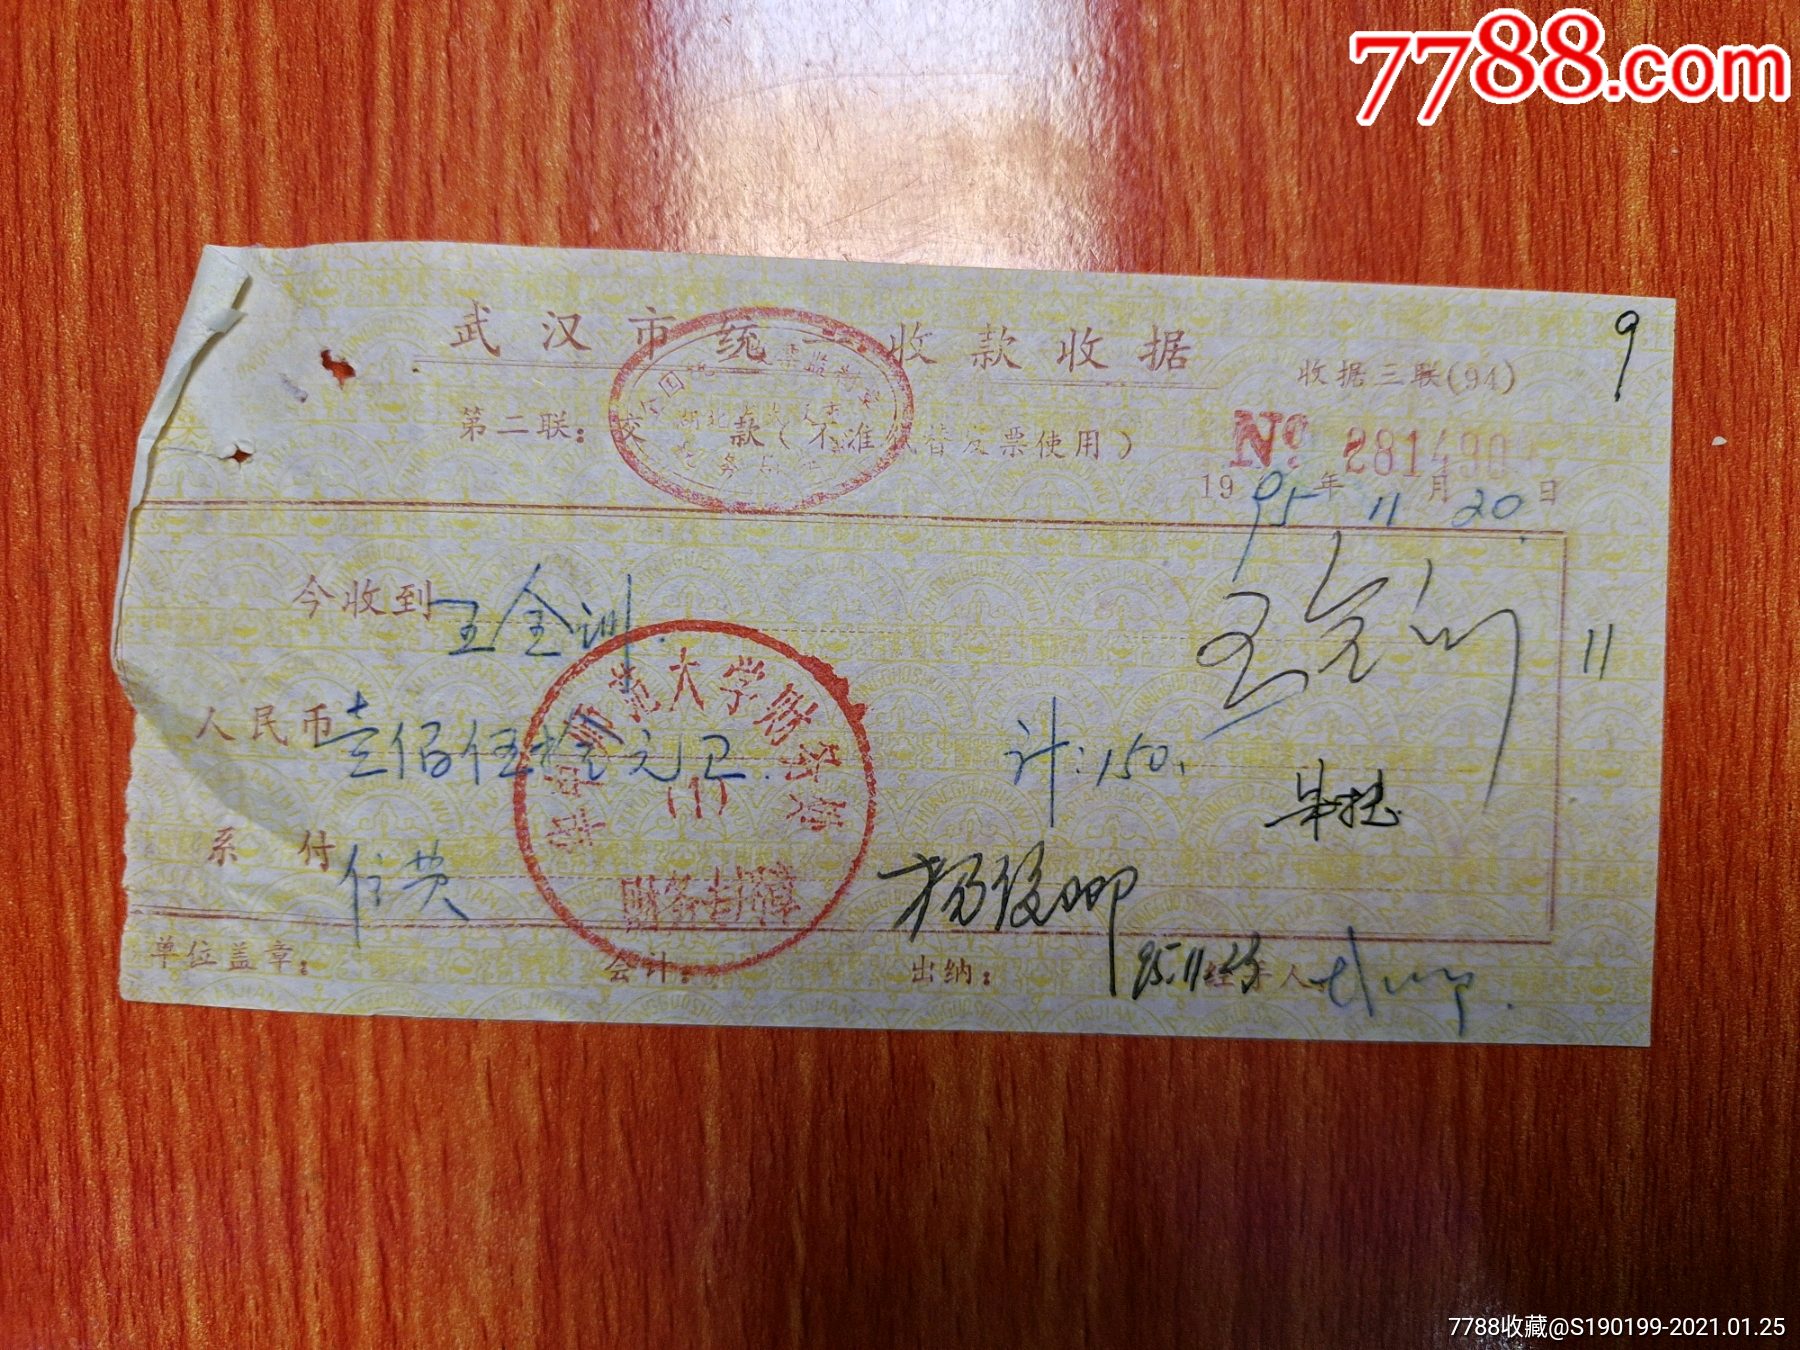 7788.com
9
武汉市统一收款收据
收据三联(94)
第二联：交 款（不准代替发票使用）
№ 281490
1995年11月20日
全国统一发票监制章
湖北
税务局
今收到 王金训
11
华中师范大学财务处
人民币 壹佰伍拾元正.
计：150.
(1)
财务专用章
系付 住费
95.11.25
单位盖章：
会计：
出纳：
经手人
7788收藏@S190199-2021.01.25